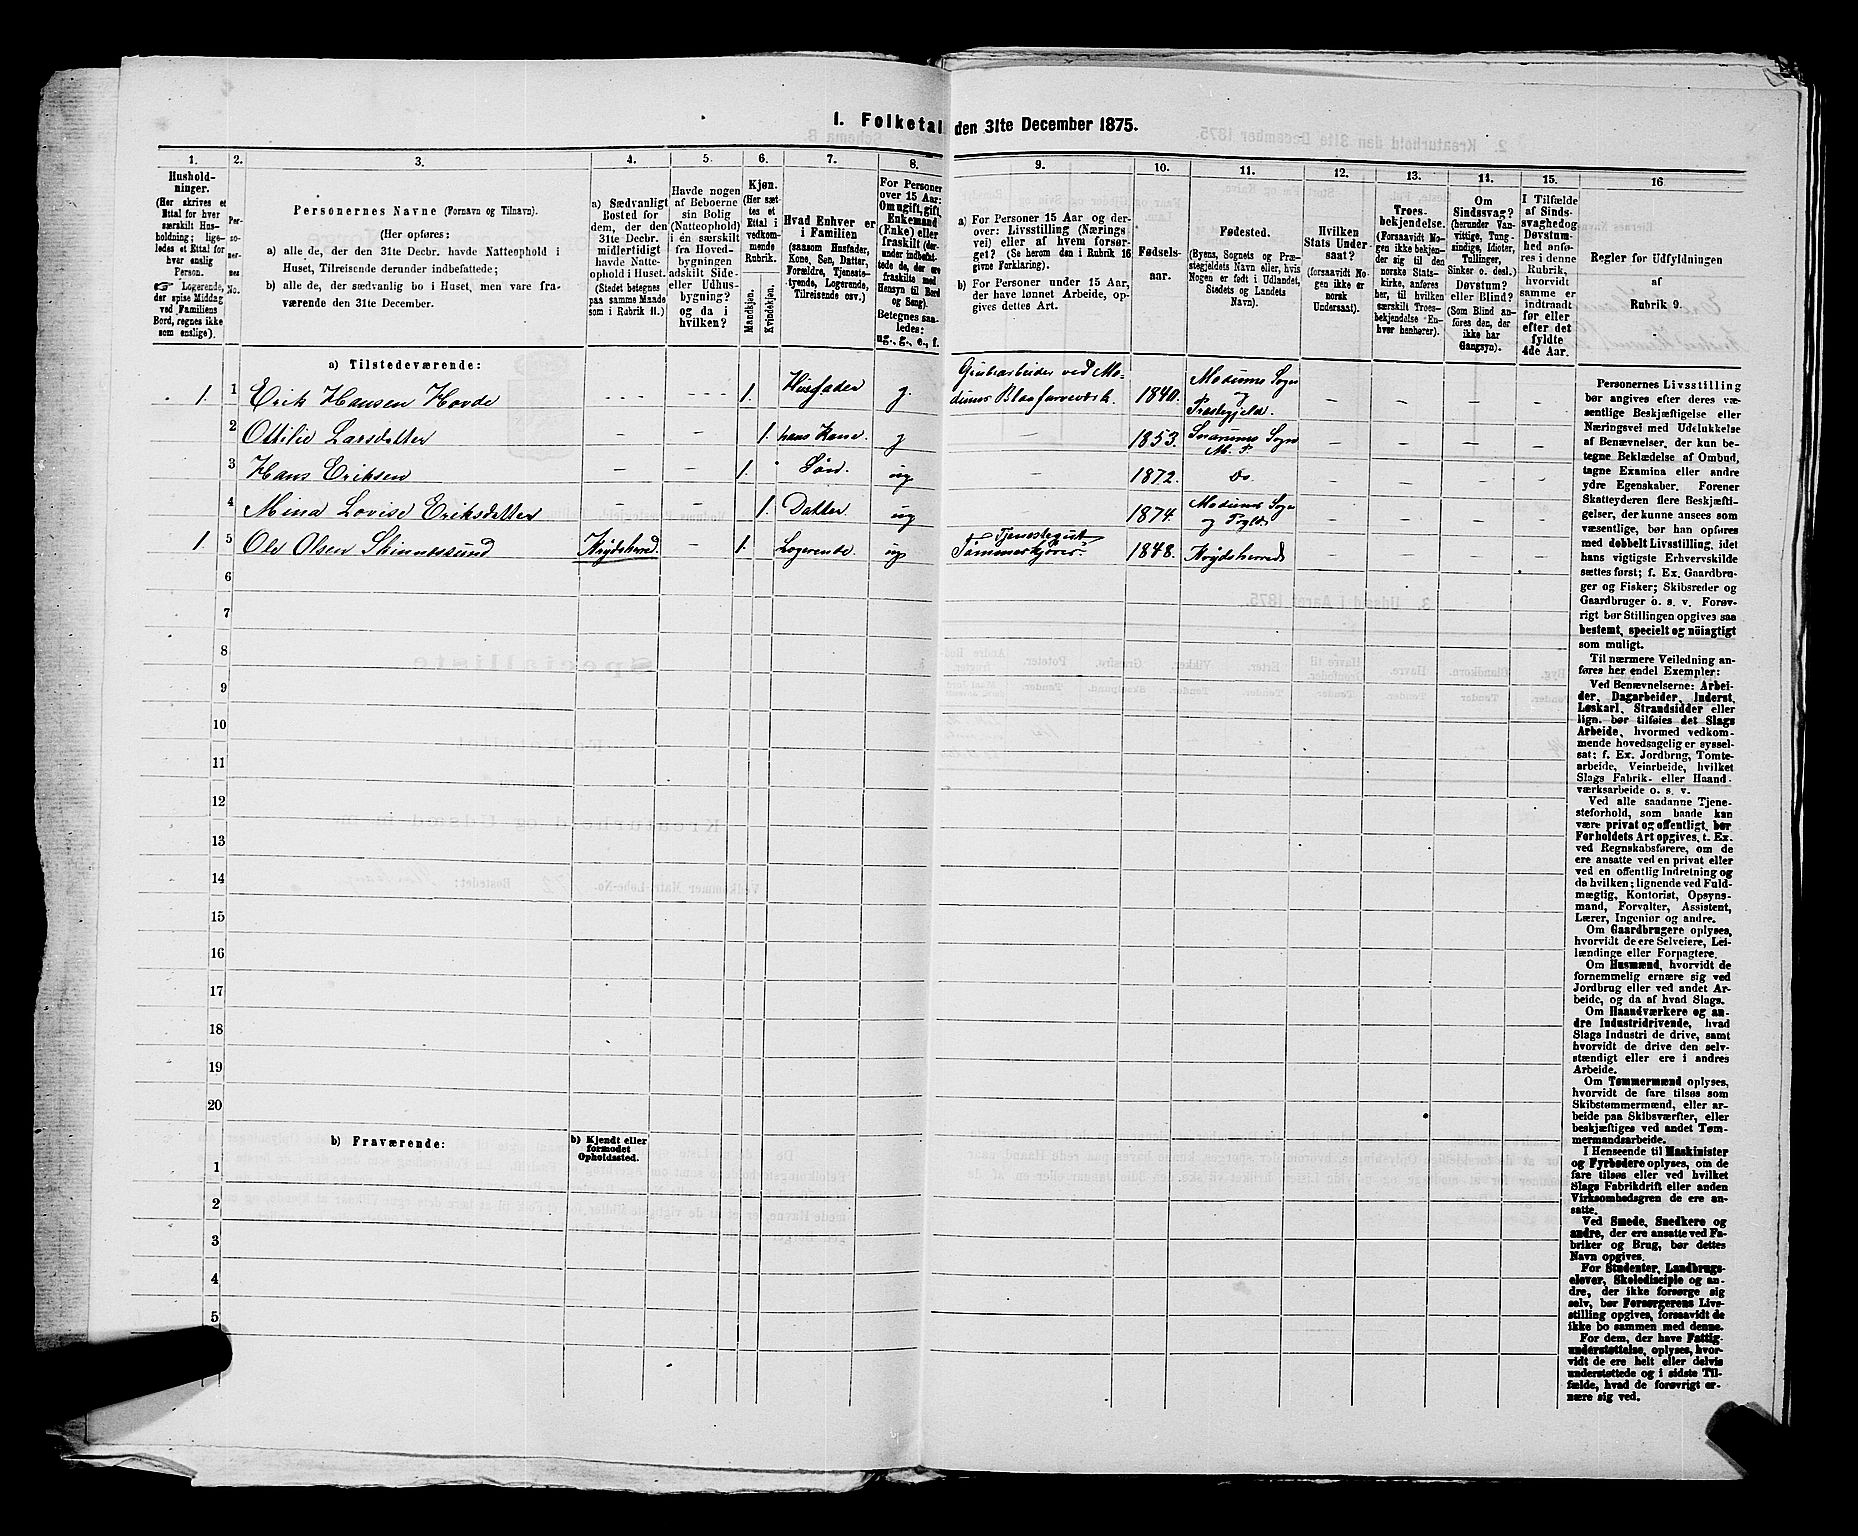 I. Folketal den 31te December 1875.
1.
2.
3.
4.
5.
6.
7.
8.
9.
10.
11.
12.
13.
14.
15.
16
Hushold-
ninger.
(Her skrives et
Ettal for hver
særskilt Hus-
holdning; lige-
ledes et Ettal for
hver enslig
Person.
☞ Logerende,
der spise Middag
ved Familiens
Bord, regnes ikke
som enslige).
Per-
so-
ner-
nes
No.
Personernes Navne (Fornavn og Tilnavn).
(Her opføres:
a) alle de, der den 31te Decbr. havde Natteophold i
Huset, Tilreisende derunder indbefattede;
b) alle de, der sædvanlig bo i Huset, men vare fra-
værende den 31te December.
a) Sædvanligt
Bosted for
dem, der den
31te Decbr.
midlertidigt
havde Natte-
ophold i Huset.
(Stedet betegnes
paa samme Maade
som i Rubrik 11.)
Havde nogen
af Beboerne
sin Bolig
(Natteophold)
i én særskilt
fra Hoved-
bygningen
adskilt Side-
eller Udhus-
bygning?
og da i
hvilken?
Kjøn.
(Her sæt-
tes et
Ettal i
vedkom-
mende
Rubrik.
Mandkjøn.
Kvindekjøn.
Hvad Enhver er
i Familien
(saasom Husfader,
Kone, Søn, Datter,
Forældre, Tjeneste-
tyende, Logerende,
Tilreisende osv.)
For Personer
over 15 Aar:
Om ugift, gift,
Enkemand
(Enke) eller
fraskilt (der-
under indbefat-
tede de, der ere
fraskilte med
Hensyn til Bord
og Seng).
Betegnes saa-
ledes:
ug., g., e., f.
a) For Personer 15 Aar og der-
over: Livsstilling (Nærings-
vei) eller af hvem forsør-
get? (Se herom den i Rubrik 16
givne Forklaring).
b) For Personer under 15 Aar,
der have lønnet Arbeide, op-
gives dettes Art.
Fødsels-
aar.
Fødested.
(Byens, Sognets og Præ-
stegjeldets Navn eller, hvis
Nogen er født i Udlandet,
Stedets og Landets
Navn).
Hvilken
Stats Under-
saat?
(forsaavidt No-
gen ikke er
norsk
Undersaat).
Troes-
bekjendelse.
(Forsaavidt No-
gen ikke bekjen-
der sig til den
norske Stats-
kirke, anføres
her, til hvilken
særskilt Troes-
bekjendelse En-
hver henhører).
Om
Sindssvag?
(herunder Van-
vittige, Tung-
sindige, Idioter,
Tullinger,
Sinker o. desl.)
Døvstum?
eller Blind?
(Som Blind an-
føres den, der
ikke har
Gangsyn).
I Tilfælde
af Sinds-
svaghed og
Døvstum-
hed anfø-
res i denne
Rubrik,
hvorvidt
samme er
indtraadt
før eller
efter det
fyldte
4de Aar.
Regler for Udfyldningen
af
Rubrik 9.
a) Tilstedeværende:
1. 1 Erik Hansen Hovde - - - - - - 1. Husfader g. Grubearbeider ved Mo-
dums Blaafarveværk. 1840. Modums Sogn
og
Præstegjeld. - - - -
2 Ottilie Larsdatter - - 1. hans Kone. g - 1853. Snarums Sogn
M. P. - - - -
3 Hans Eriksen - - 1. Søn. ug - 1872. Do. - - - -
4 Mina Lovise Eriksdatter - - 1. Datter ug - 1874. Modums Sogn
og Prgld. - - - -
1. 5 Ole Olsen Skinnessund Krydsherred. - 1. Logerende. ug Tjenestegut
Tømmerkjører 1848. Krydsherred - - - -
6
7
8
9
10
11
12
13
14
15
16
17
18
19
20
b) Fraværende:
b) Kjendt eller
formodet
Opholdssted.
1
2
3
4
5
Personernes Livsstilling
bør angives efter deres væ-
sentlige Beskjæftigelse eller
Næringsvei med Udelukkelse
af Benævnelser, der kun be-
tegne Beklædelse af Ombud,
tagne Examina eller andre
ydre Egenskaber. Forener
Skatteyderen flere Beskjæfti-
gelser, der kunne ansees som
væsentlige, bør han opføres
med dobbelt Livsstilling, idet
hans vigtigste Erhvervskilde
sættes først; f. Ex. Gaardbru-
ger og Fisker; Skibsreder og
Gaardbruger o. s. v. Forøv-
rigt bør Stillingen opgives saa
bestemt, specielt og nöiagtigt
som muligt.
Til nærmere Veiledning an-
føres her endel Exempler:
Ved Benævnelserne: Arbei-
der, Dagarbeider, Inderst,
Løskarl, Strandsidder eller
lign. bør tilføies det Slags
Arbeide, hvormed vedkom-
mende hovedsagelig er syssel-
sat; f. Ex. Jordbrug, Tomte-
arbeide, Veiarbeide, hvilket
Slags Fabrik- eller Haand-
værksarbeide o. s. v.
Ved alle saadanne Tjene-
steforhold, som baade kan
være privat og offentligt, bør
Forholdets Art opgives, t. Ex.
ved Regnskabsførere, om de
ere ansatte ved en privat eller
ved en offentlig Indretning og
da hvilken; lignende ved Fuld-
mægtig, Kontorist, Opsyns-
mand, Forvalter, Assistent,
Lærer, Ingeniør og andre.
Om Gaardbrugere oplyses,
hvorvidt de ere Selveiere, Lei-
lændinge eller Forpagtere.
Om Husmænd, hvorvidt de
fornemmelig ernære sig ved
Jordbrug eller ved andet Ar-
beide, og da af hvad Slags.
Om Haandværkere og an-
dre Industridrivende, hvad
Slags Industri de drive, samt
hvorvidt de drive den selv-
stændigt eller ere i andres
Arbeide.
Om Tømmermænd oplyses,
hvorvidt de fare tilsøs som
Skibstømmermænd, eller ar-
beide paa Skibsværfter, eller
beskjæftiges ved andet Tøm-
mermandsarbeide.
I Henseende til Maskinister
og Fyrbødere oplyses, om de
fare tilsøs eller ved hvilket
Slags Fabrikdrift eller anden
Virksomhedsgren de ere an-
satte.
Ved Smede, Snedkere og
andre, der ere ansatte ved Fa-
briker og Brug, bør dettes
Navn opgives.
For Studenter, Landbrugs-
elever, Skoledisciple og an-
dre, der ikke forsørge sig
selv, bør Forsørgerens Livs-
stilling opgives, forsaavidt de
ikke bo sammen med denne.
For dem, der have Fattig-
understøttelse, oplyses, hvor-
vidt de ere helt eller delvis
understøttede og i sidste Til-
fælde, hvad de forøvrigt er-
nære sig ved.